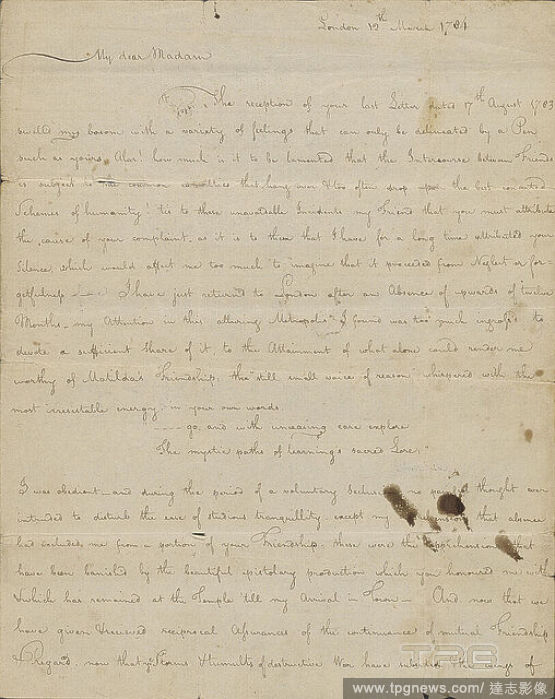 London 12th March 1784
My dear Madam
The reception of your last Letter dated 17th August 1783
swell'd my bosom with a variety of feelings that can only be delineated by a Pen
such as yours. Alas! how much is it to be lamented that the Intercourse between Friends
is subject to the common casualties that hang over & too often drop upon the best concerted
Schemes of humanity! tis to these unavoidable Incidents my Friend that you must attribute
the cause of your complaint, as it is to them that I have for a long time attributed your
Silence, which would affect me too much to imagine that it proceeded from Neglect or for-
getfulness — I have just returned to London after an Absence of upwards of twelve
Months — my Attention in this alluring Metropolis I found was too much engross'd to
devote a sufficient Share of it to the Attainment of what alone could render me
worthy of Matilda's Friendship; the "still small voice of reason" whispered with the
most irresistable energy, in your own words.
---- go, and with unceasing care explore
The mystic paths of learning's sacred Lore,"
I was obedient — and during the period of a voluntary no painful thought ever
intruded to disturb the ease of studious tranquillity except my that absence
had excluded me from a portion of your Friendship; these were the apprehensions that
have been banished by the beautiful epistolary production which you honoured me with
& which has remained at the Temple 'till my Arrival in Town — And now that we
have given & received reciprocal Assurances of the continuance of mutual Friendship
& regard, now that ye Storms & tumults of destructive War have subsided & the wings of
TPG
www.tpgnews.com / 達志影像